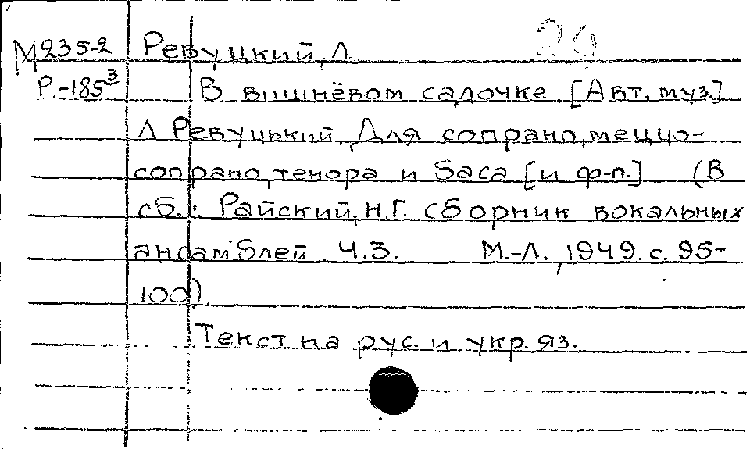 29
М235-2 Ревуцкий, Л.
Р.-185³ В вишнёвом садочке [Авт. муз.]
Л Ревуцький, Для сопрано, меццо-
сопрано, тенора и баса [и ф-п.] (В
сб.: Райский, Н.Г. Сборник вокальных
ансамблей Ч.3. М.-Л., 1949. с. 95-
100).
Текст на рус. и укр. яз.